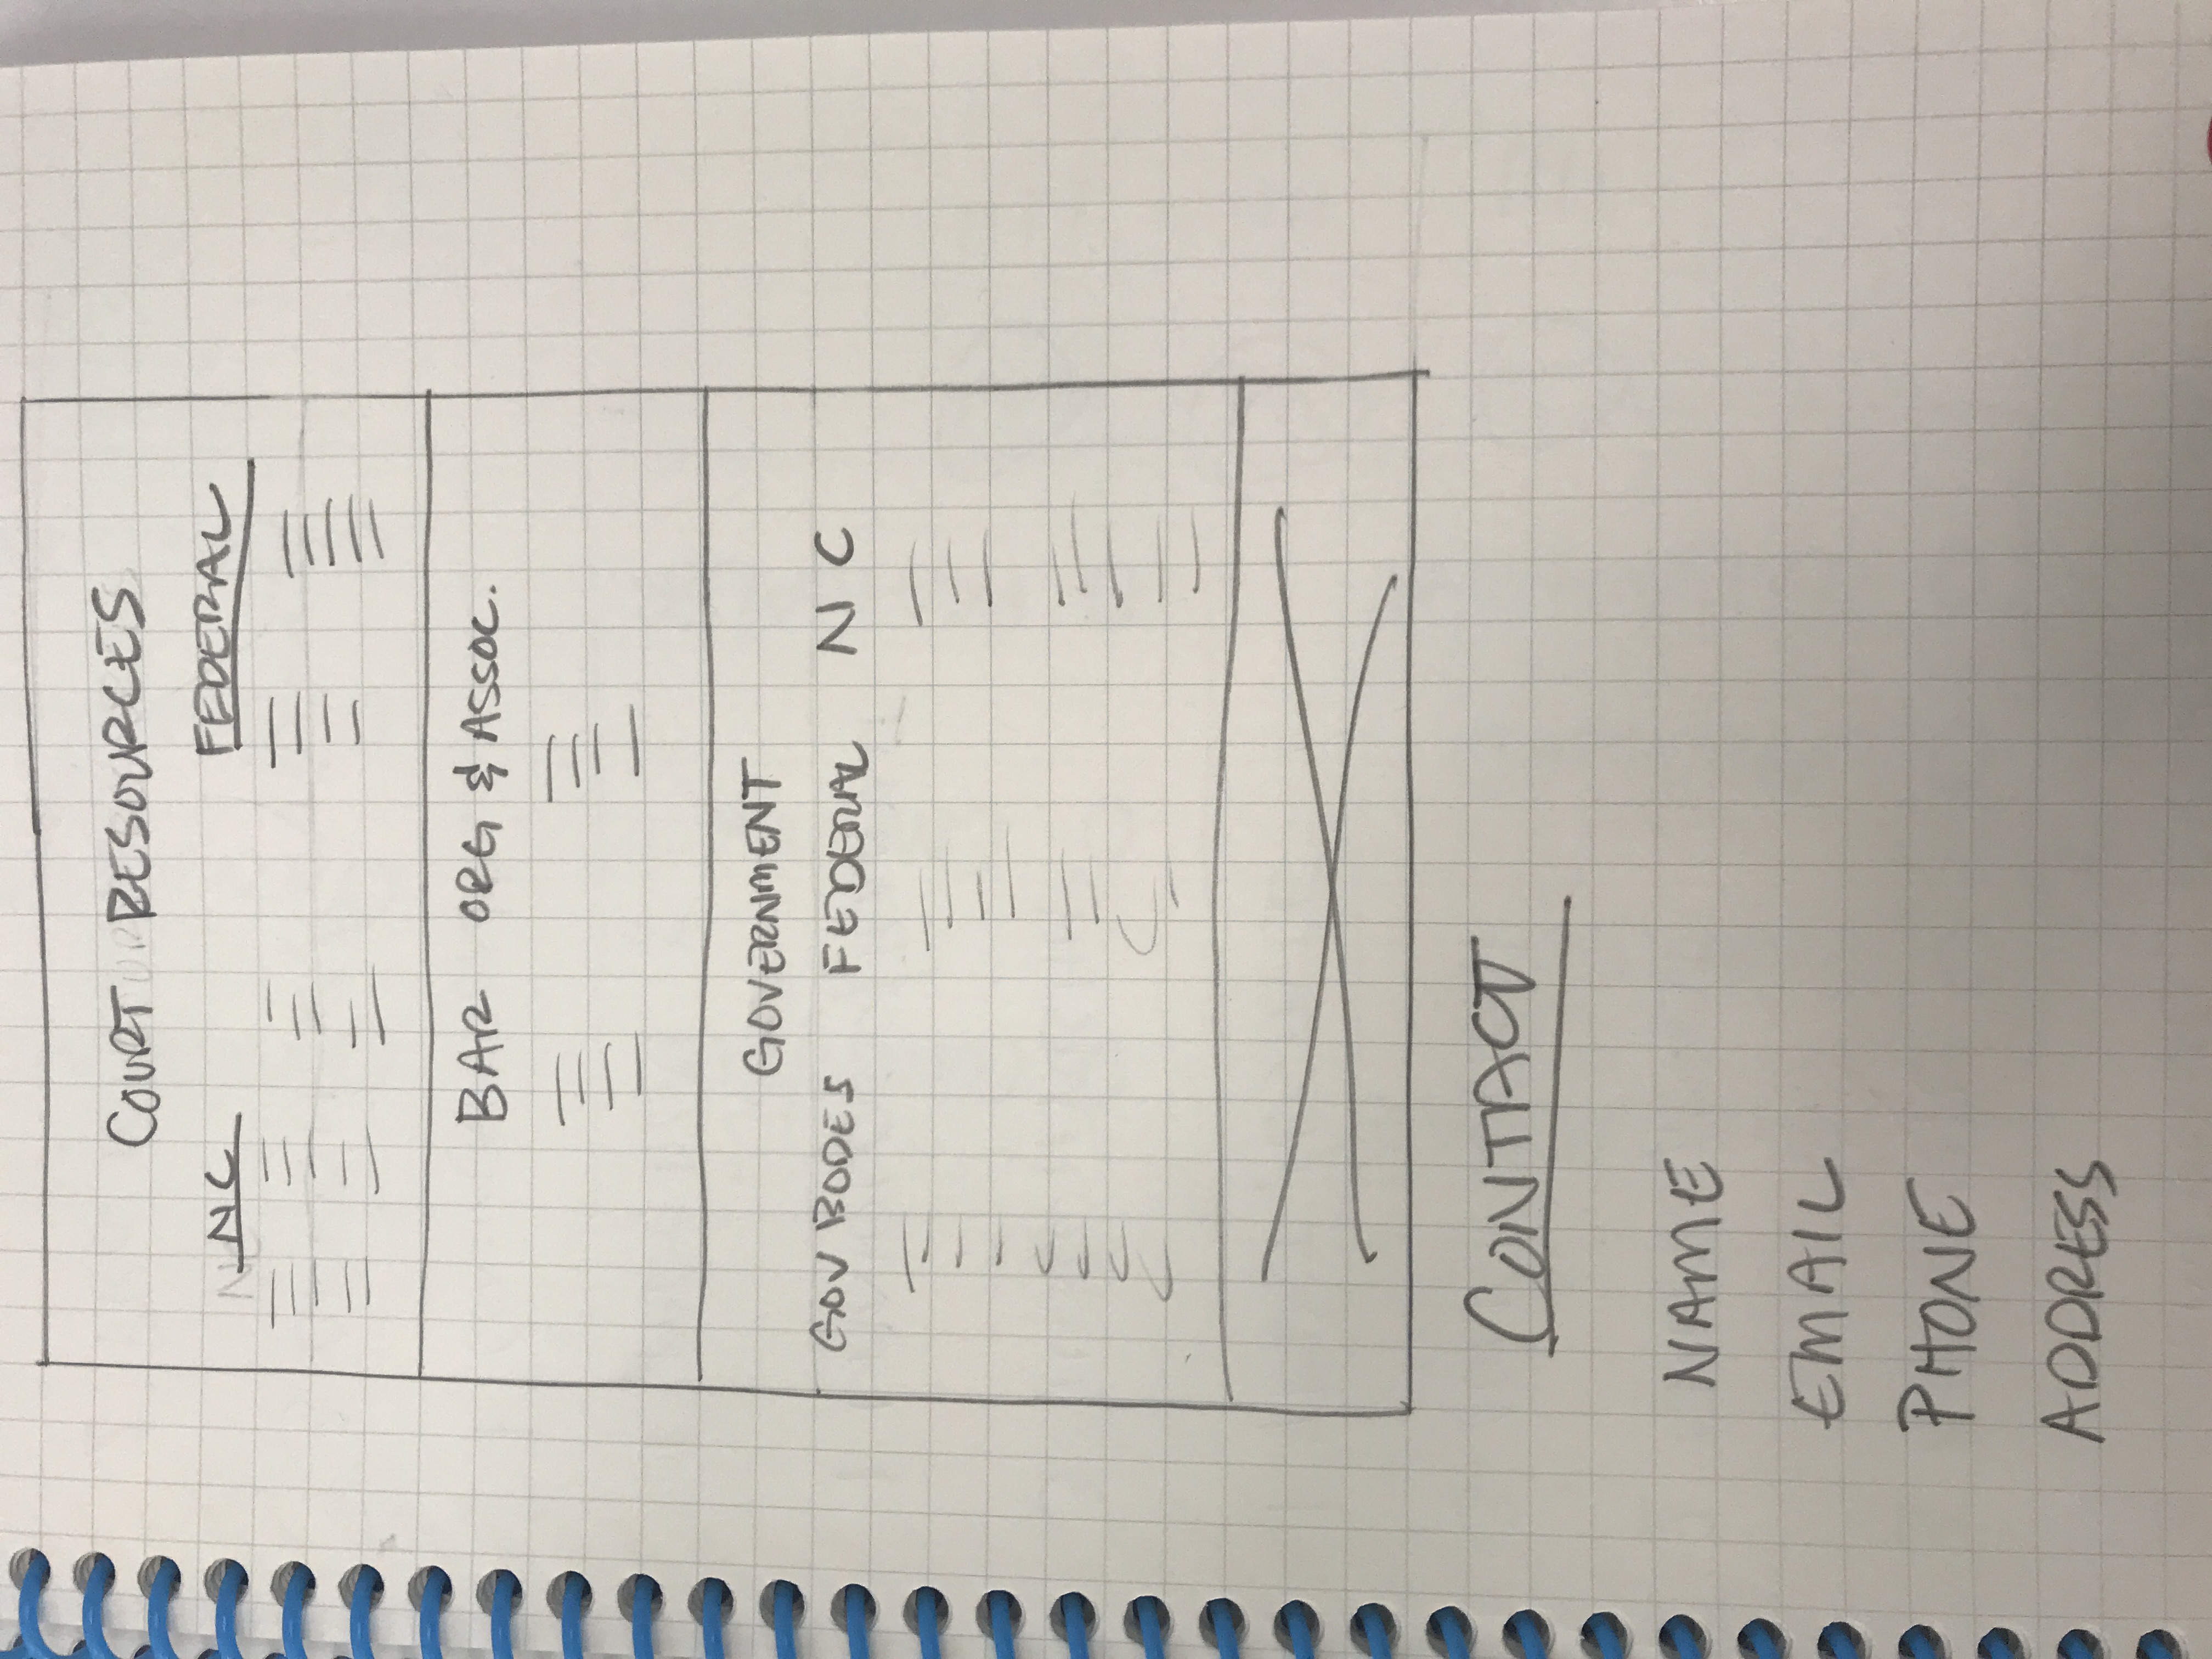 COURT RESOURCES
NC FEDERAL
BAR ORG & ASSOC.
GOVERNMENT
GOV BODES FEDERAL NC
CONTACT
NAME
EMAIL
PHONE
ADDRESS